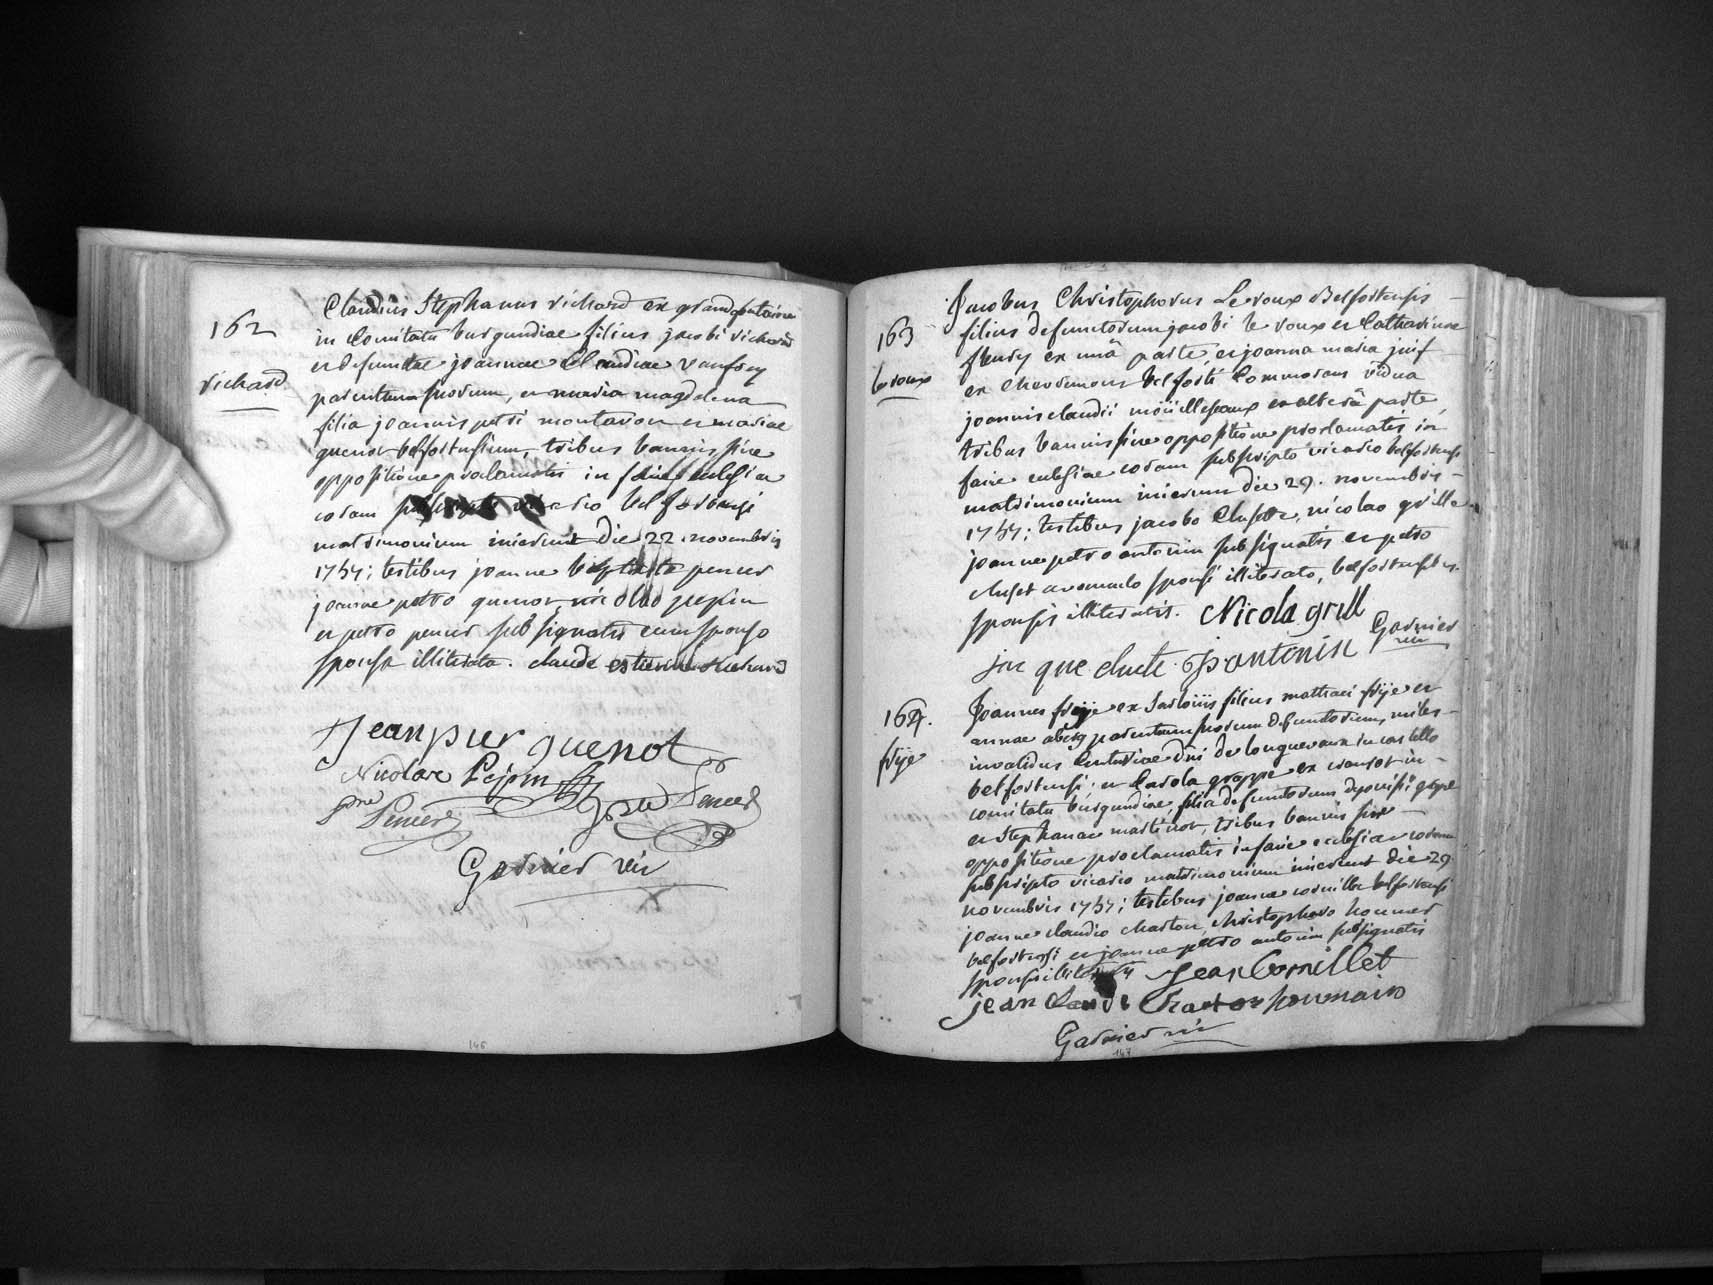 162
richard
Claudius Stephanus richard ex grandfontaine
in Comitatu burgundiae filius jacobi richard
et defunctae joannae Claudiae
parentum suorum, et maria magdalena
filia joannis petri montavon et mariae
quenot belfortensium, tribus bannis sine
oppositione proclamatis in facie ecclesiae
coram vicario belfortensi
matrimonium inierunt die 22 novembris
1757; testibus joanne baptista
joanne petro quenot, nicolao pepin
et petro subsignatis cum sponso
sponsa illiterata. claude estienne Richard
Jean pier quenot
Nicolas
Garnier vic
146
163
le roux
Jacobus Christophorus Leroux Belfortensis
filius defunctorum jacobi le roux et Catharinae
fleury ex unâ parte et joanna maria juif
ex belforti Commorans vidua
joannis claudii ex alterâ parte,
tribus bannis sine oppositione proclamatis in
facie ecclesiae coram subscripto vicario belfortensi
matrimonium inierunt die 29. novembris
1757; testibus jacobo Clusete, nicolao grille
joanne petro antonin subsignatis et petro
cluset avunculo sponsi illiterato, belfortensibus
sponsis illiteratis. Nicola grill
Garnier
vic
jac que clucte Jpantonin
164.
frije
Joannes frije ex filius matthaei frije et
annae parentum suorum defunctorum, miles
invalidus Centuriae Dni de longuevaux in castello
belfortensi; et Carola grappe ex in
comitatu burgundiae, filia defunctorum grappe
et Stephanae martinot, tribus bannis sine
oppositione proclamatis in facie ecclesiae coram
subscripto vicario matrimonium inierunt die 29
novembris 1757; testibus joanne cornille belfortensi
joanne claudio charton, christophoro
belfortensi et joanne petro antonin subsignatis
sponsis Jean Cornillet
jean Claude Charton
Garnier vic
147